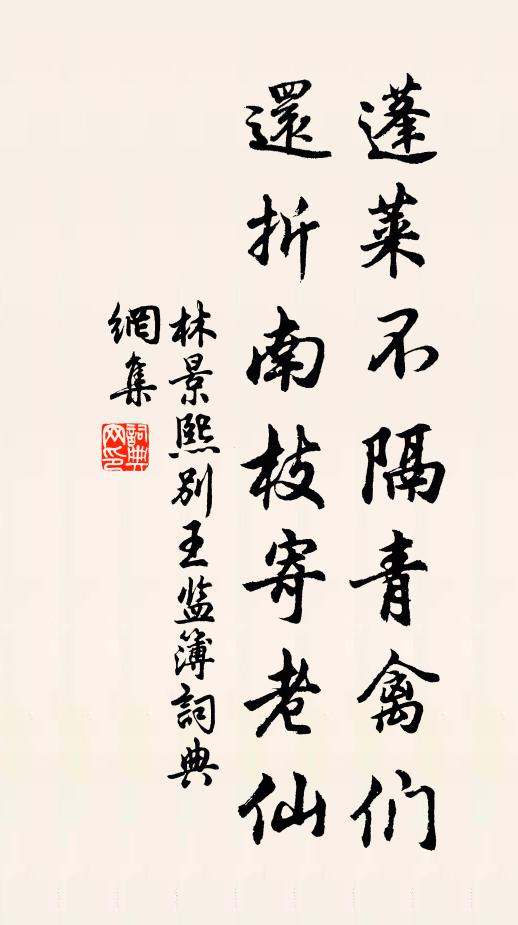 蓬萊不隔青禽们
還折南枝寄老仙
林景熙別王监簿詞典
網集
詞典网印